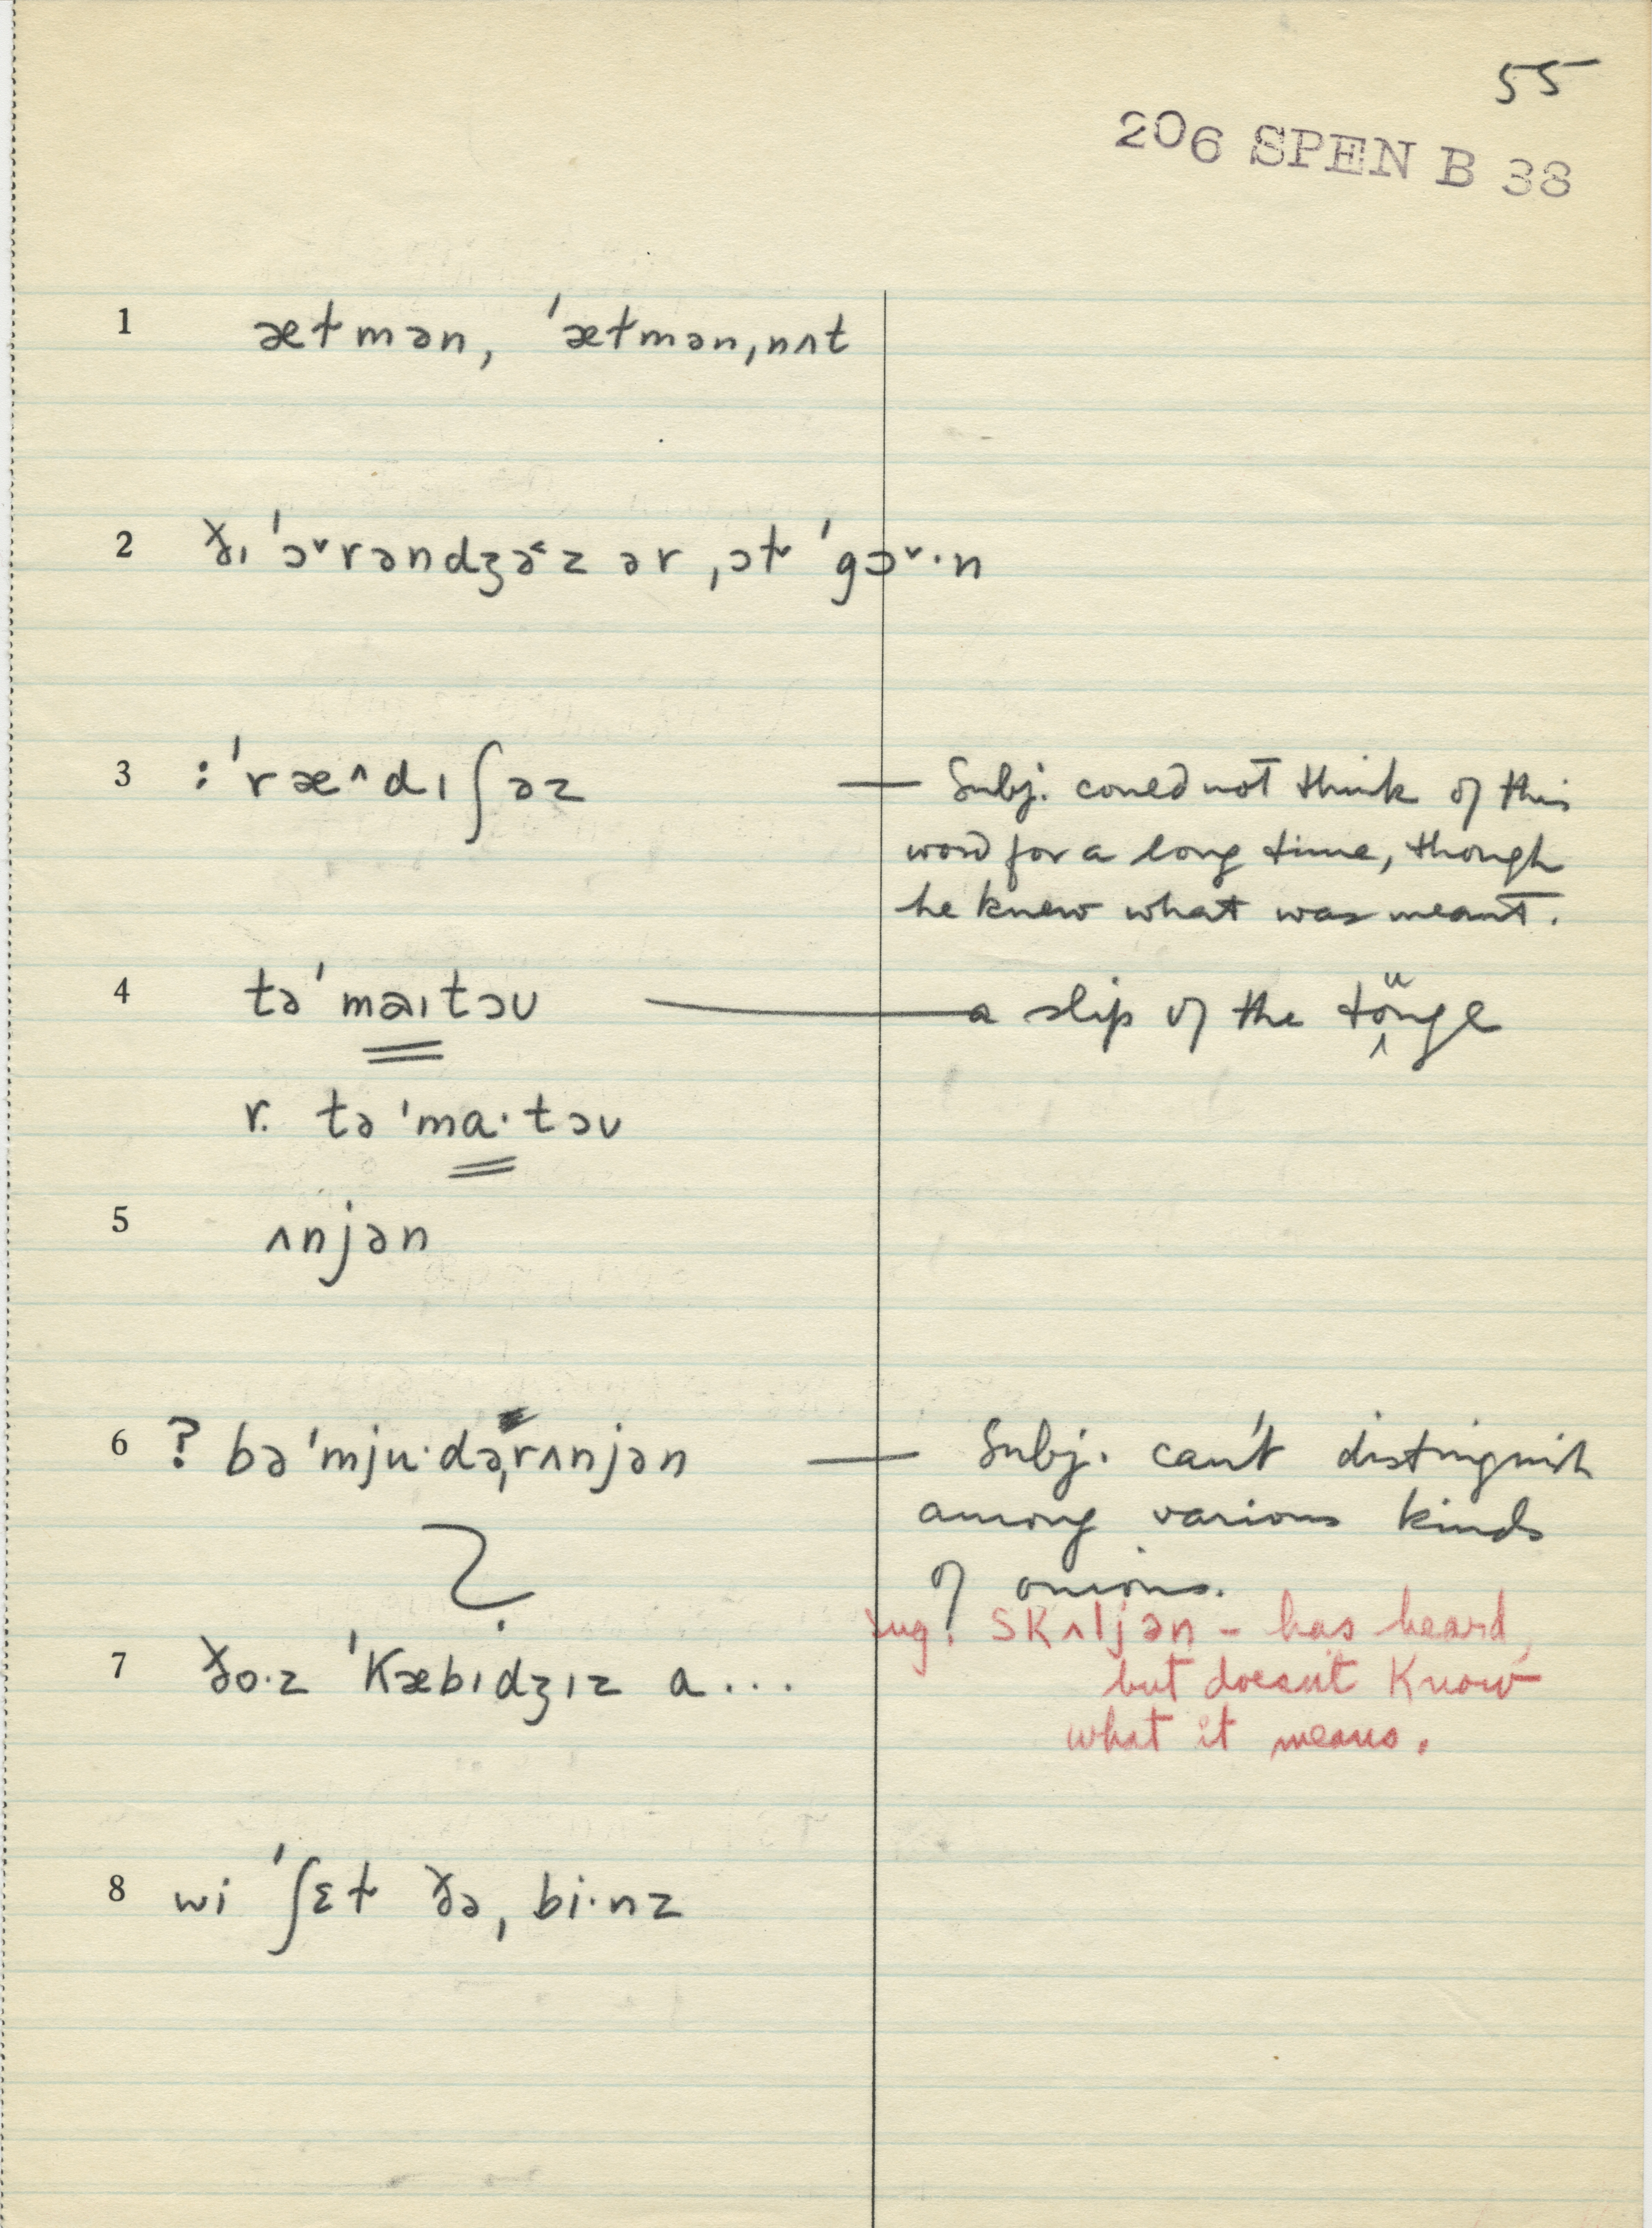 55
206 SPEN B 38
1 ætmən, ˈætmən,nʌt
2 ðɪ ˈɔ˅rəndʒə˂z ər ˌɔt ˈgɔ˅·n
3 :ˈræ^dɪʃəz — Subj. could not think of this
word for a long time, though
he knew what was meant.
4 təˈmaɪtəʊ — a slip of the tonuge
r. təˈma·təʊ
5 ʌnjən
6 ? bəˈmju·dəˌrʌnjən — Subj. can't distinguish
among various kinds
of onions.
sug. skʌljən – has heard,
but doesn't know
what it means.
7 ðo·z ˈkæbɪdʒɪz a...
8 wi ˈʃɛt ðəˌbi·nz